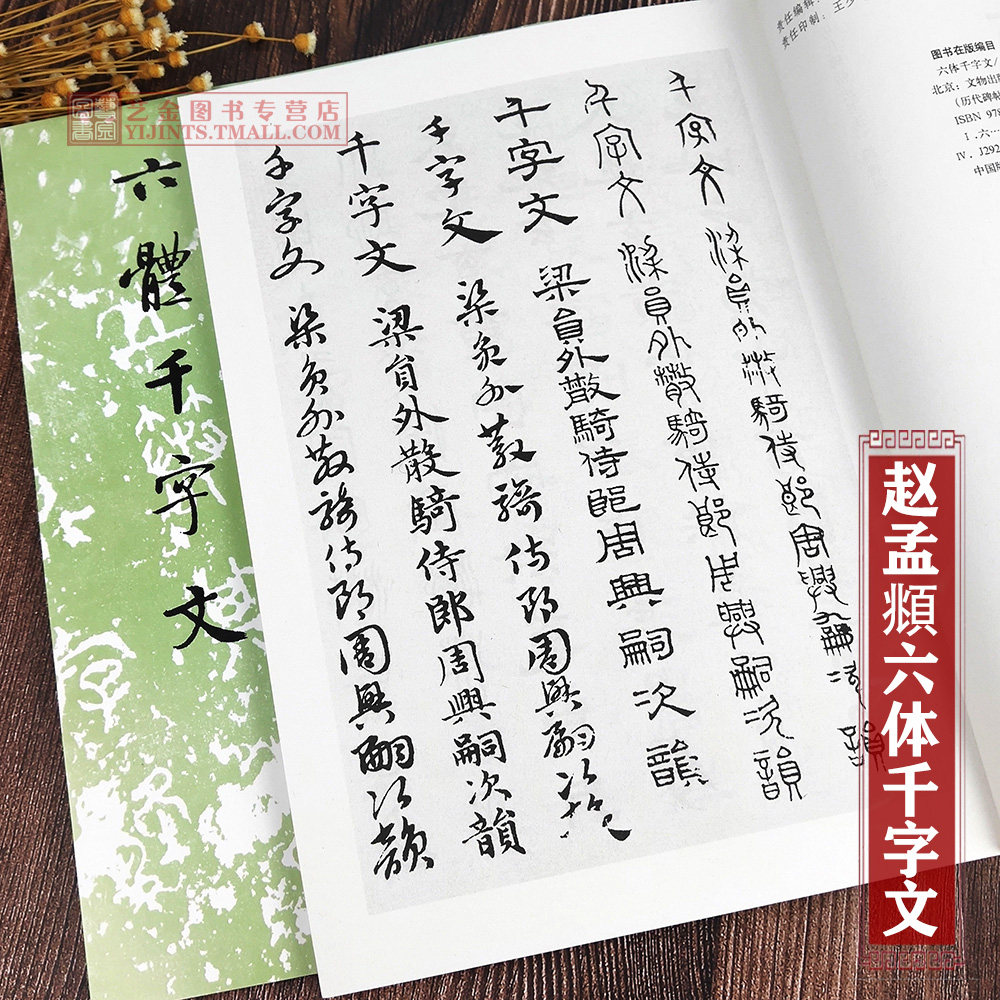 艺金图书专营店
YIJINTS.TMALL.COM
六體千字文
千字文 梁員外散騎侍郎周興嗣次韻
千字文 梁員外散騎侍郎周興嗣次韻
千字文 梁員外散騎侍郎周興嗣次韻
千字文 梁員外散騎侍郎周興嗣次韻
千字文 梁員外散騎侍郎周興嗣次韻
千字文 梁員外散騎侍郎周興嗣次韻
责任编辑:
责任印制:王
图书在版编目
六体千字文/
北京:文物出
(历代碑帖
ISBN 978
Ⅰ.六…
Ⅳ.J292
中国版
赵孟頫六体千字文